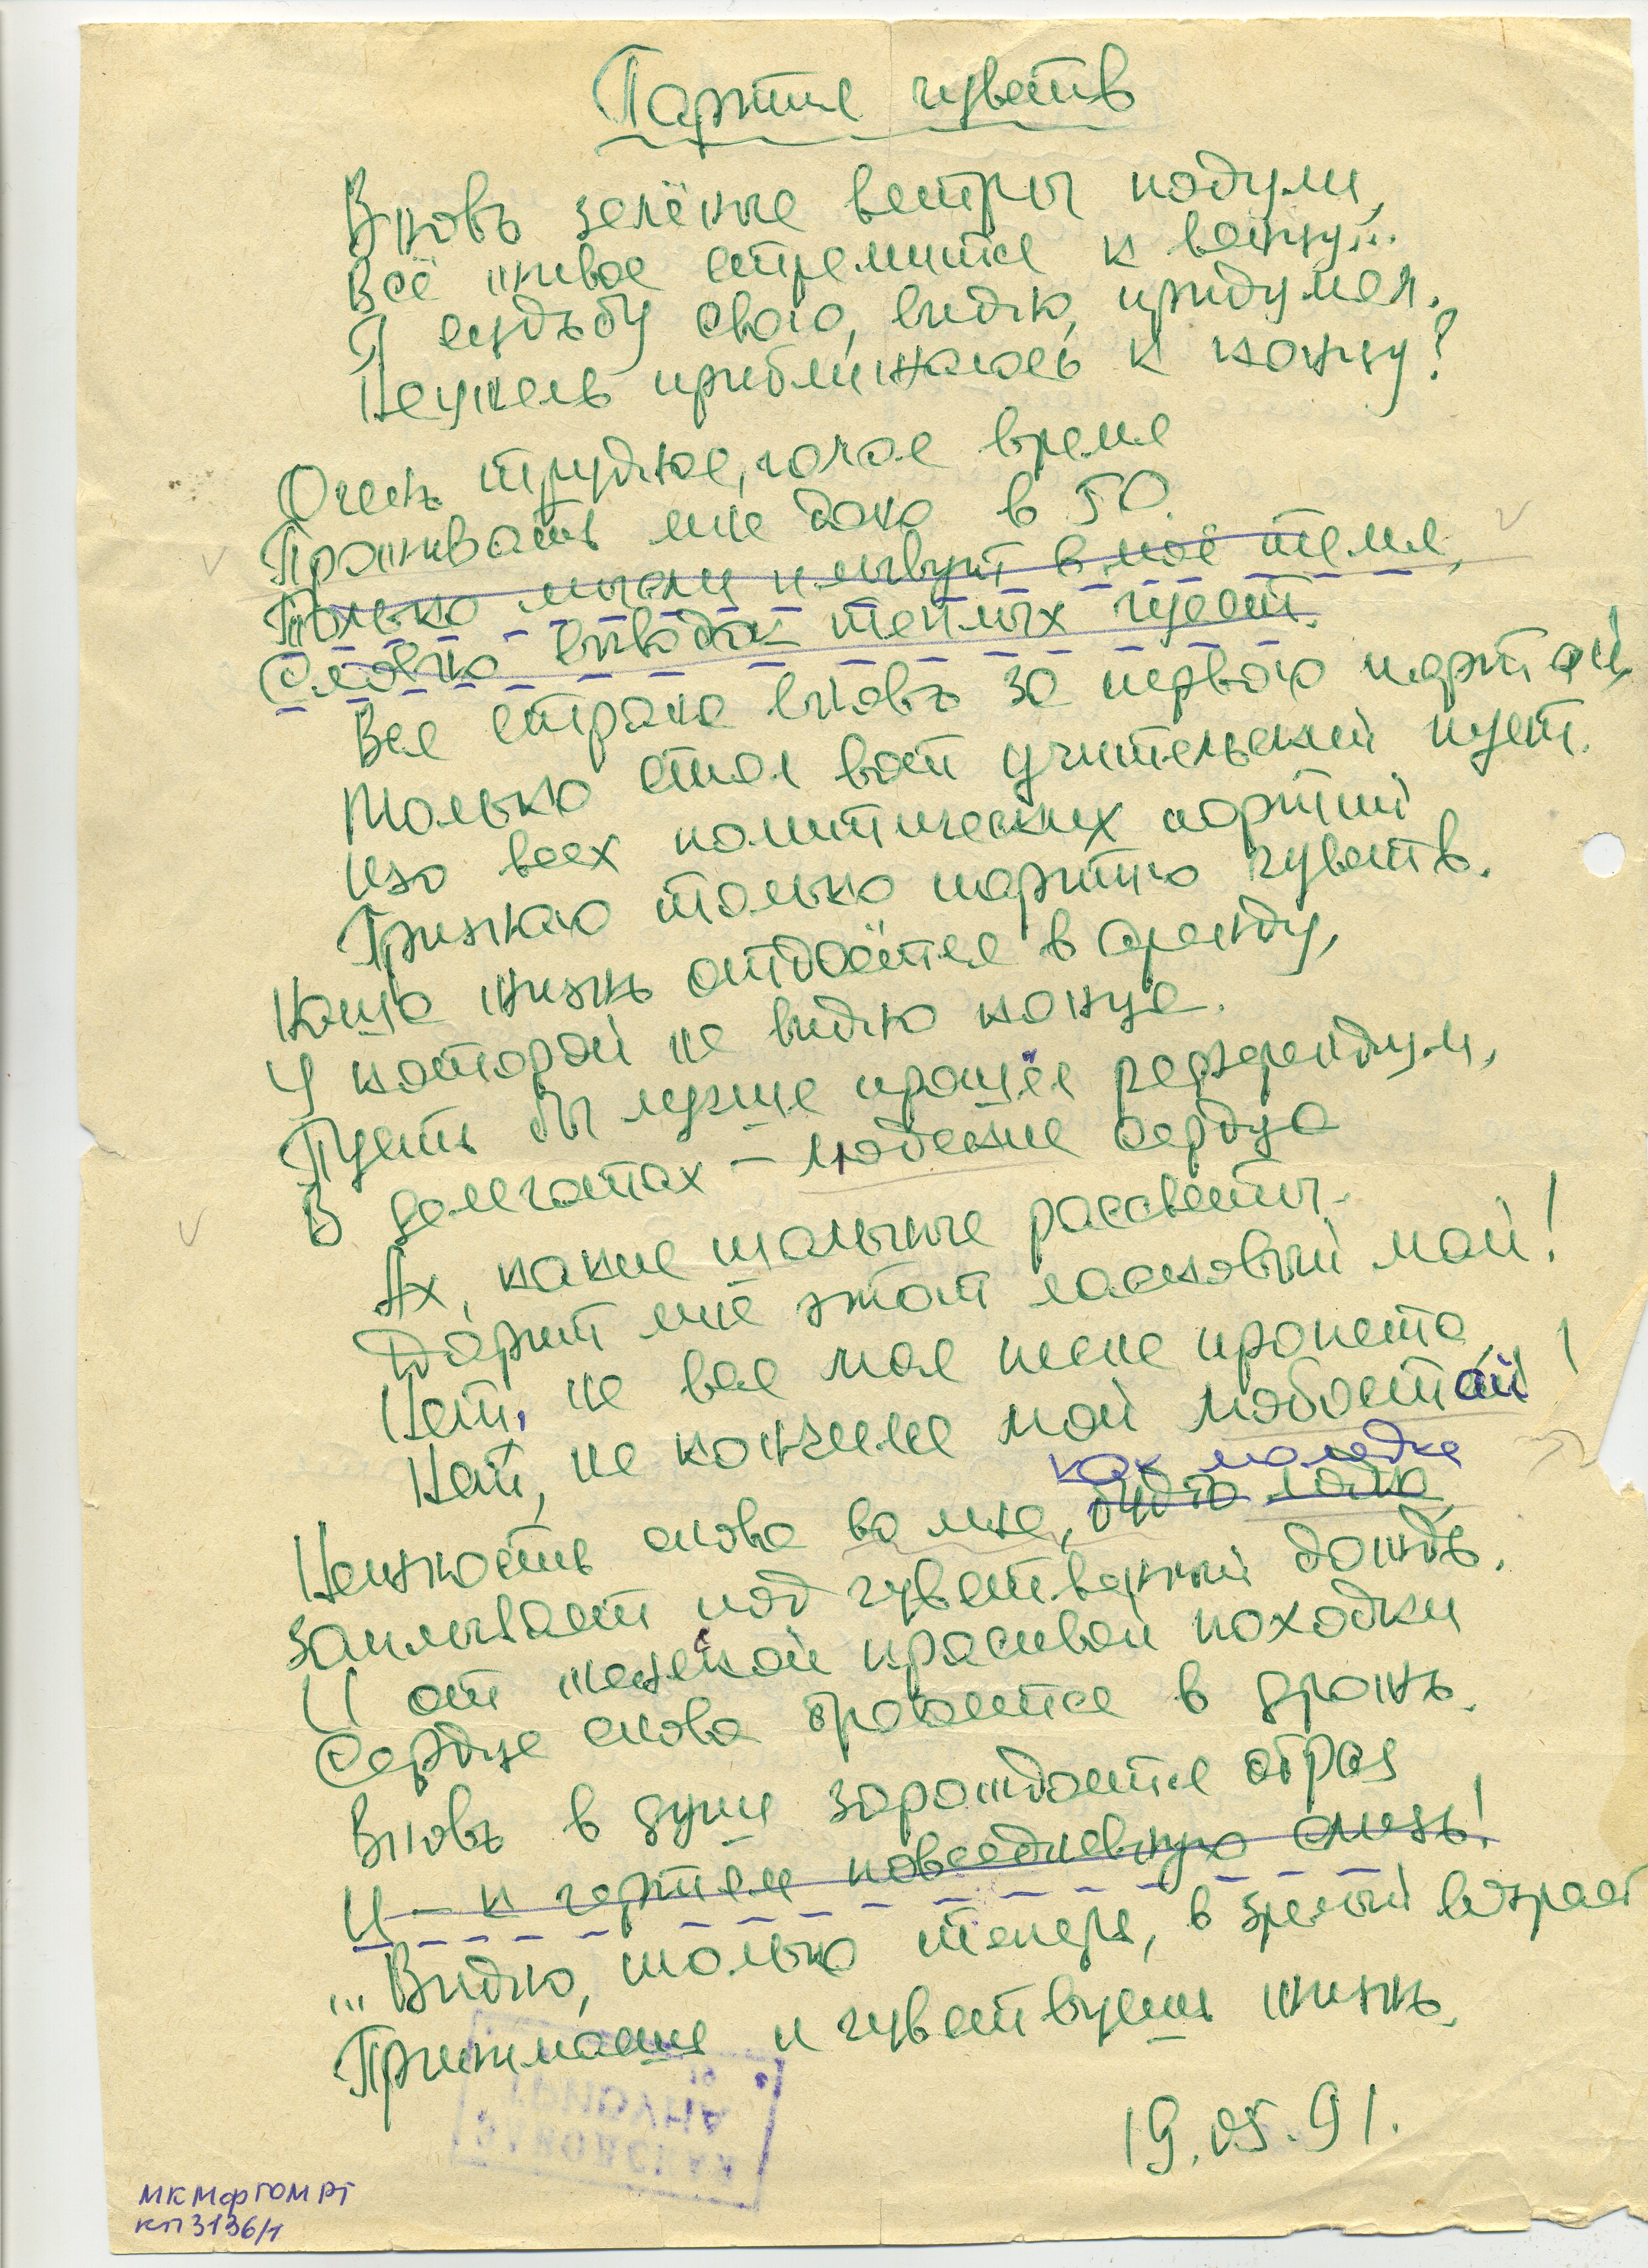 Партия чувств
Вновь зелёные ветры подули,
Всё живое стремится к венцу...
Я судьбу свою, видно, придумал.
Неужель приближаюсь к концу?
Очень трудное, голое время
Проживать мне дано в 50.
Только мысли плывут в моё темя,
Словно выводок теплых гусят.
Вся страна вновь за первою партой
Только стол вот учительский пуст.
Изо всех политических партий
Признаю только партию чувств.
Наша жизнь отдаётся в аренду,
У которой не видно конца.
Пусть бы лучше прошёл референдум,
В делегатах – людские сердца
Ах, какие шальные рассветы
Дарит мне этот ласковый май!
Нет, не вся моя песня пропета,
Нет, не кончился мой
как молодка
Нежность снова во мне, будто лодка,
Заплывает под чувственный дождь.
И от женской красивой походки
Сердце снова бросается в дрожь.
Вновь в душе зарождается образ
И – к чертям повседневную слизь!
...Видно, только теперь, в зрелый возраст
Принимаешь и чувствуешь жизнь.
19.05.91.
ЗАВОДСКАЯ
ТРИБУНА
МКМфГОМРТ
КП3136/1